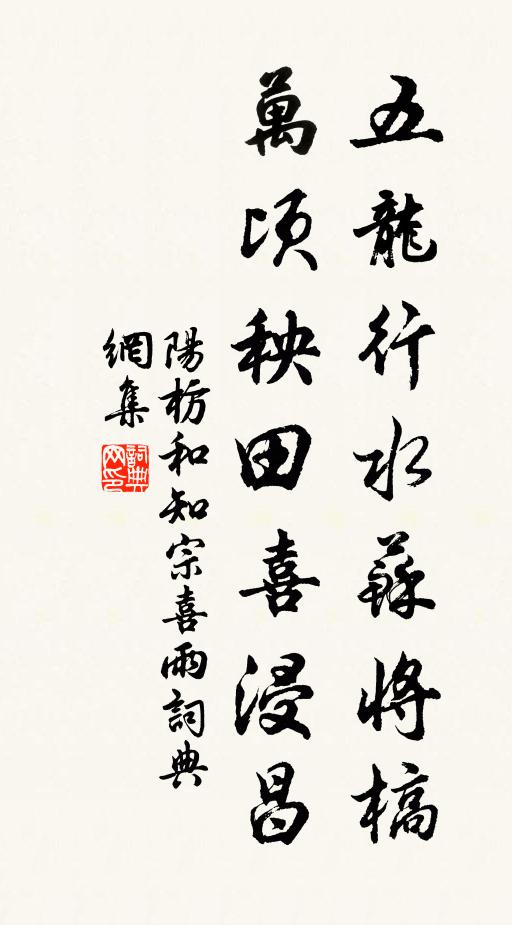 五龍行水蘇將槁
萬頃秧田喜浸昌
陽枋和知宗喜雨詞典
網集
詞典
网印